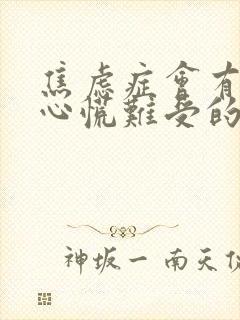 焦虑症會有
心慌難受的
神坂一 南天